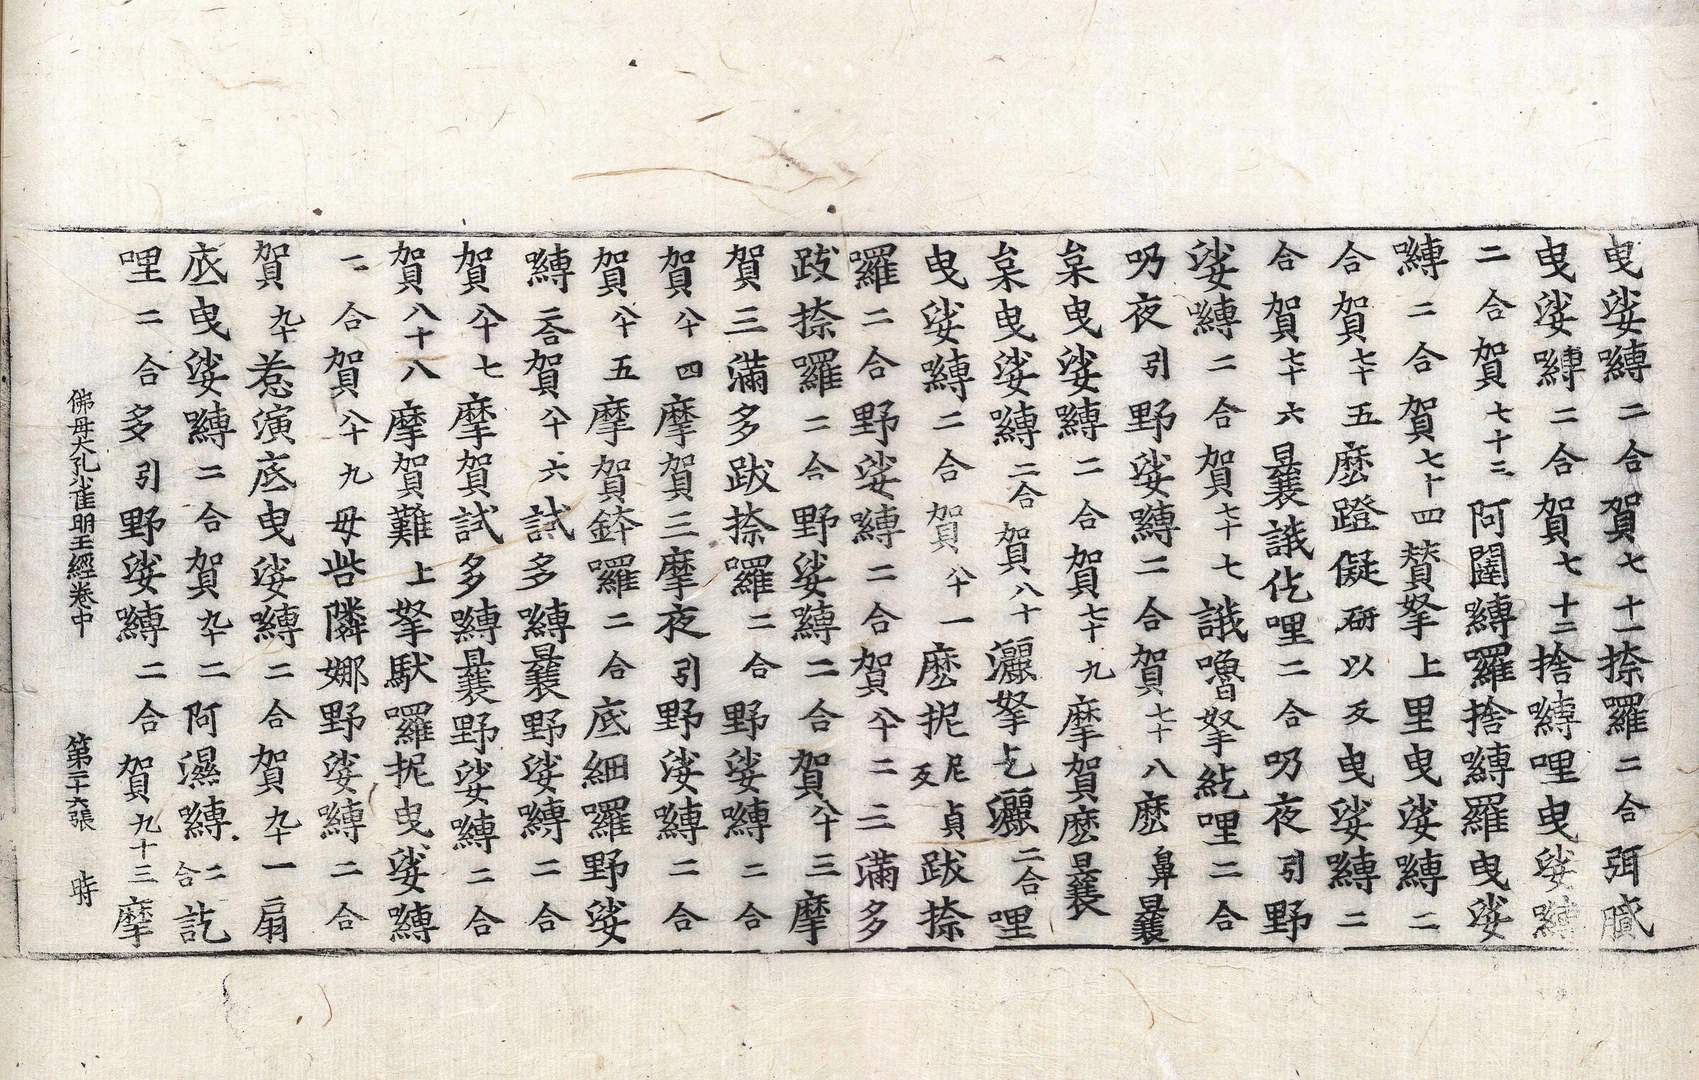 曳娑嚩二合賀七十一捺羅二合弭膩
曳娑嚩二合賀七十二捨嚩哩曳娑嚩
二合賀七十三阿闥嚩羅捨嚩羅曳娑
嚩二合賀七十四賛拏上里曳娑嚩二
合賀七十五麽蹬儗硏以反曳娑嚩二
合賀七十六曩誐仡哩二合乃夜引野
娑嚩二合賀七十七誐嚕拏紇哩二合
乃夜引野娑嚩二合賀七十八麽鼻曩
枲曳娑嚩二合賀七十九摩賀麽曩
枲曳娑嚩二合賀八十灑拏乞灑二合哩
曳娑嚩二合賀八十一麽抳尼貞反跋捺
羅二合野娑嚩二合賀八十二三滿多
跋捺囉二合野娑嚩二合賀八十三摩
賀三滿多跋捺囉二合野娑嚩二合
賀八十四摩賀三摩夜引野娑嚩二合
賀八十五摩賀鉢囉二合底細囉野娑
嚩二合賀八十六試多嚩曩野娑嚩二合
賀八十七摩賀試多嚩曩野娑嚩二合
賀八十八摩賀難上拏馱囉抳曳娑嚩
二合賀八十九母呰隣娜野娑嚩二合
賀九十惹演底曳娑嚩二合賀九十一扇
底曳娑嚩二合賀九十二阿濕嚩二合訖
哩二合多引野娑嚩二合賀九十三摩
佛母大孔雀明王經卷中 第二十六張 時